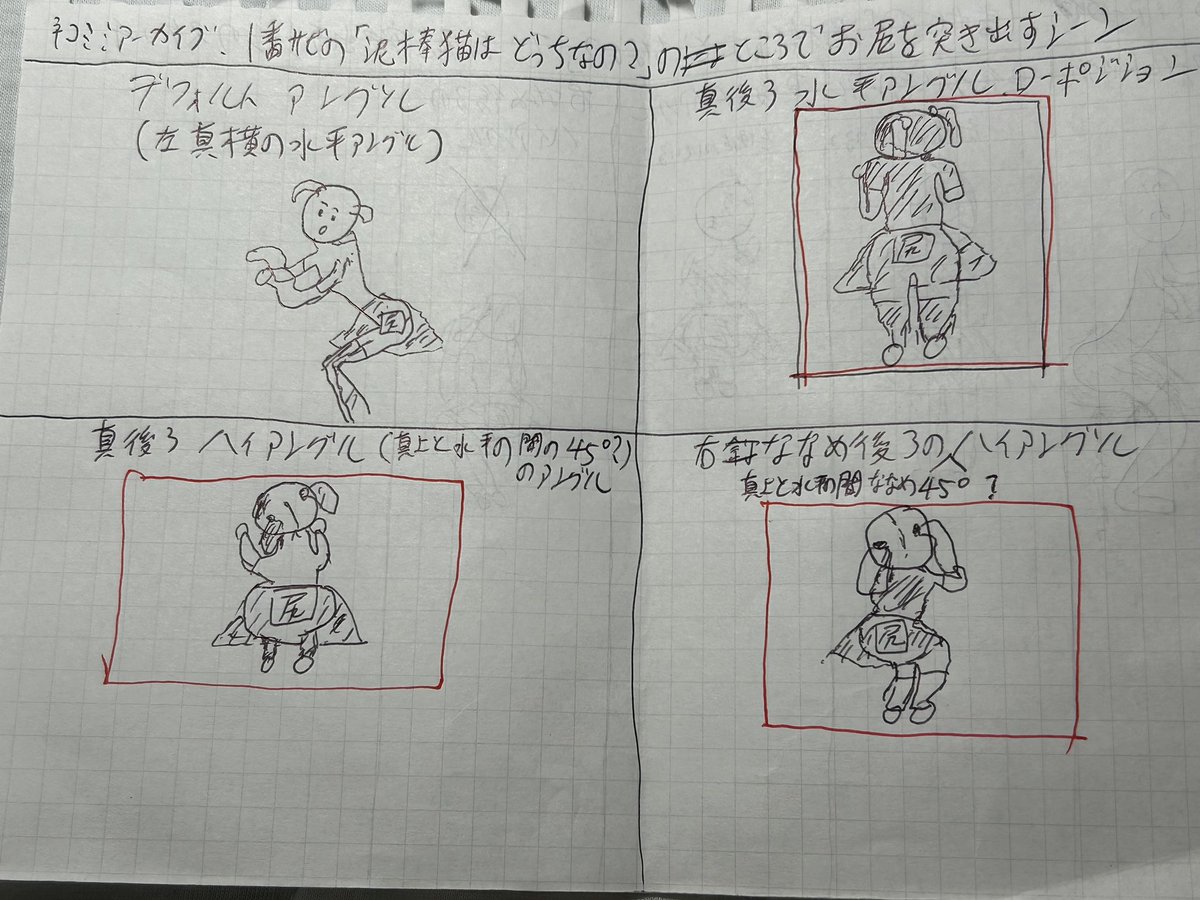 ネコミミアーカイブ、1番サビの「泥棒猫はどっちなの?」のところでお尻を突き出すシーン
デフォルトアングル
(左真横の水平アングル)
尻
真後ろ水平アングル、ローポジション
尻
真後ろハイアングル(真上と水平の間の45°?)
のアングル
尻
右ななめ後ろのハイアングル
真上と水平の間ななめ45°?
尻